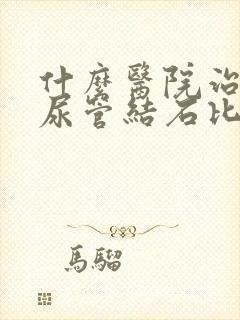 什麼醫院治
尿管結石比
馬騮